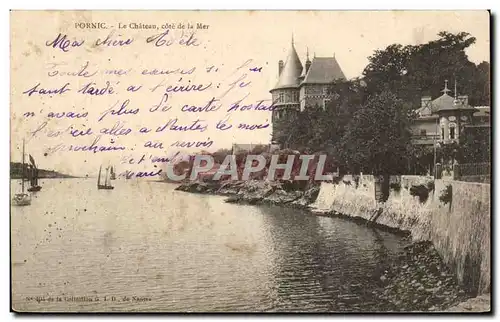 PORNIC. - Le Château, côté de la Mer
Ma chère Adèle,
Toute mes excuses si j'ai
tant tardé a t'écrire
n'avais plus de carte postale
j'espère allez a Nantes le moi
prochain
au revoir
Marie
CPARAMA
de la Collection G. I. D., de Nantes